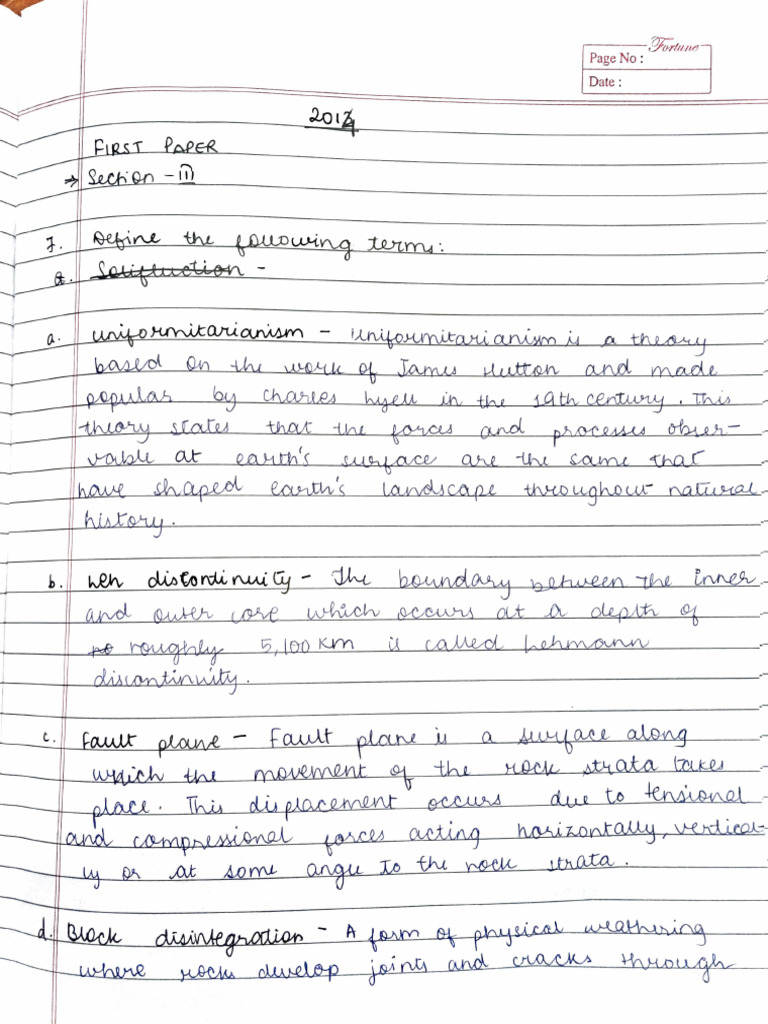 Fortune
Page No :
Date :
2014
FIRST PAPER
→ Section - III
7. Define the following terms:
a. Solifluction -
a. uniformitarianism - Uniformitarianism is a theory
based on the work of James Hutton and made
popular by Charles hyell in the 19th century. This
theory states that the forces and processes obser-
vable at earth's surface are the same that
have shaped earth's landscape throughout natural
history.
b. Leh discontinuity - The boundary between the inner
and outer core which occurs at a depth of
roughly 5,100 KM is called Lehmann
discontinuity.
c. Fault plane - Fault plane is a surface along
which the movement of the rock strata takes
place. This displacement occurs due to tensional
and compressional forces acting horizontally, vertical-
ly or at some angle to the rock strata.
d. Block disintegration - A form of physical weathering
where rocks develop joints and cracks through